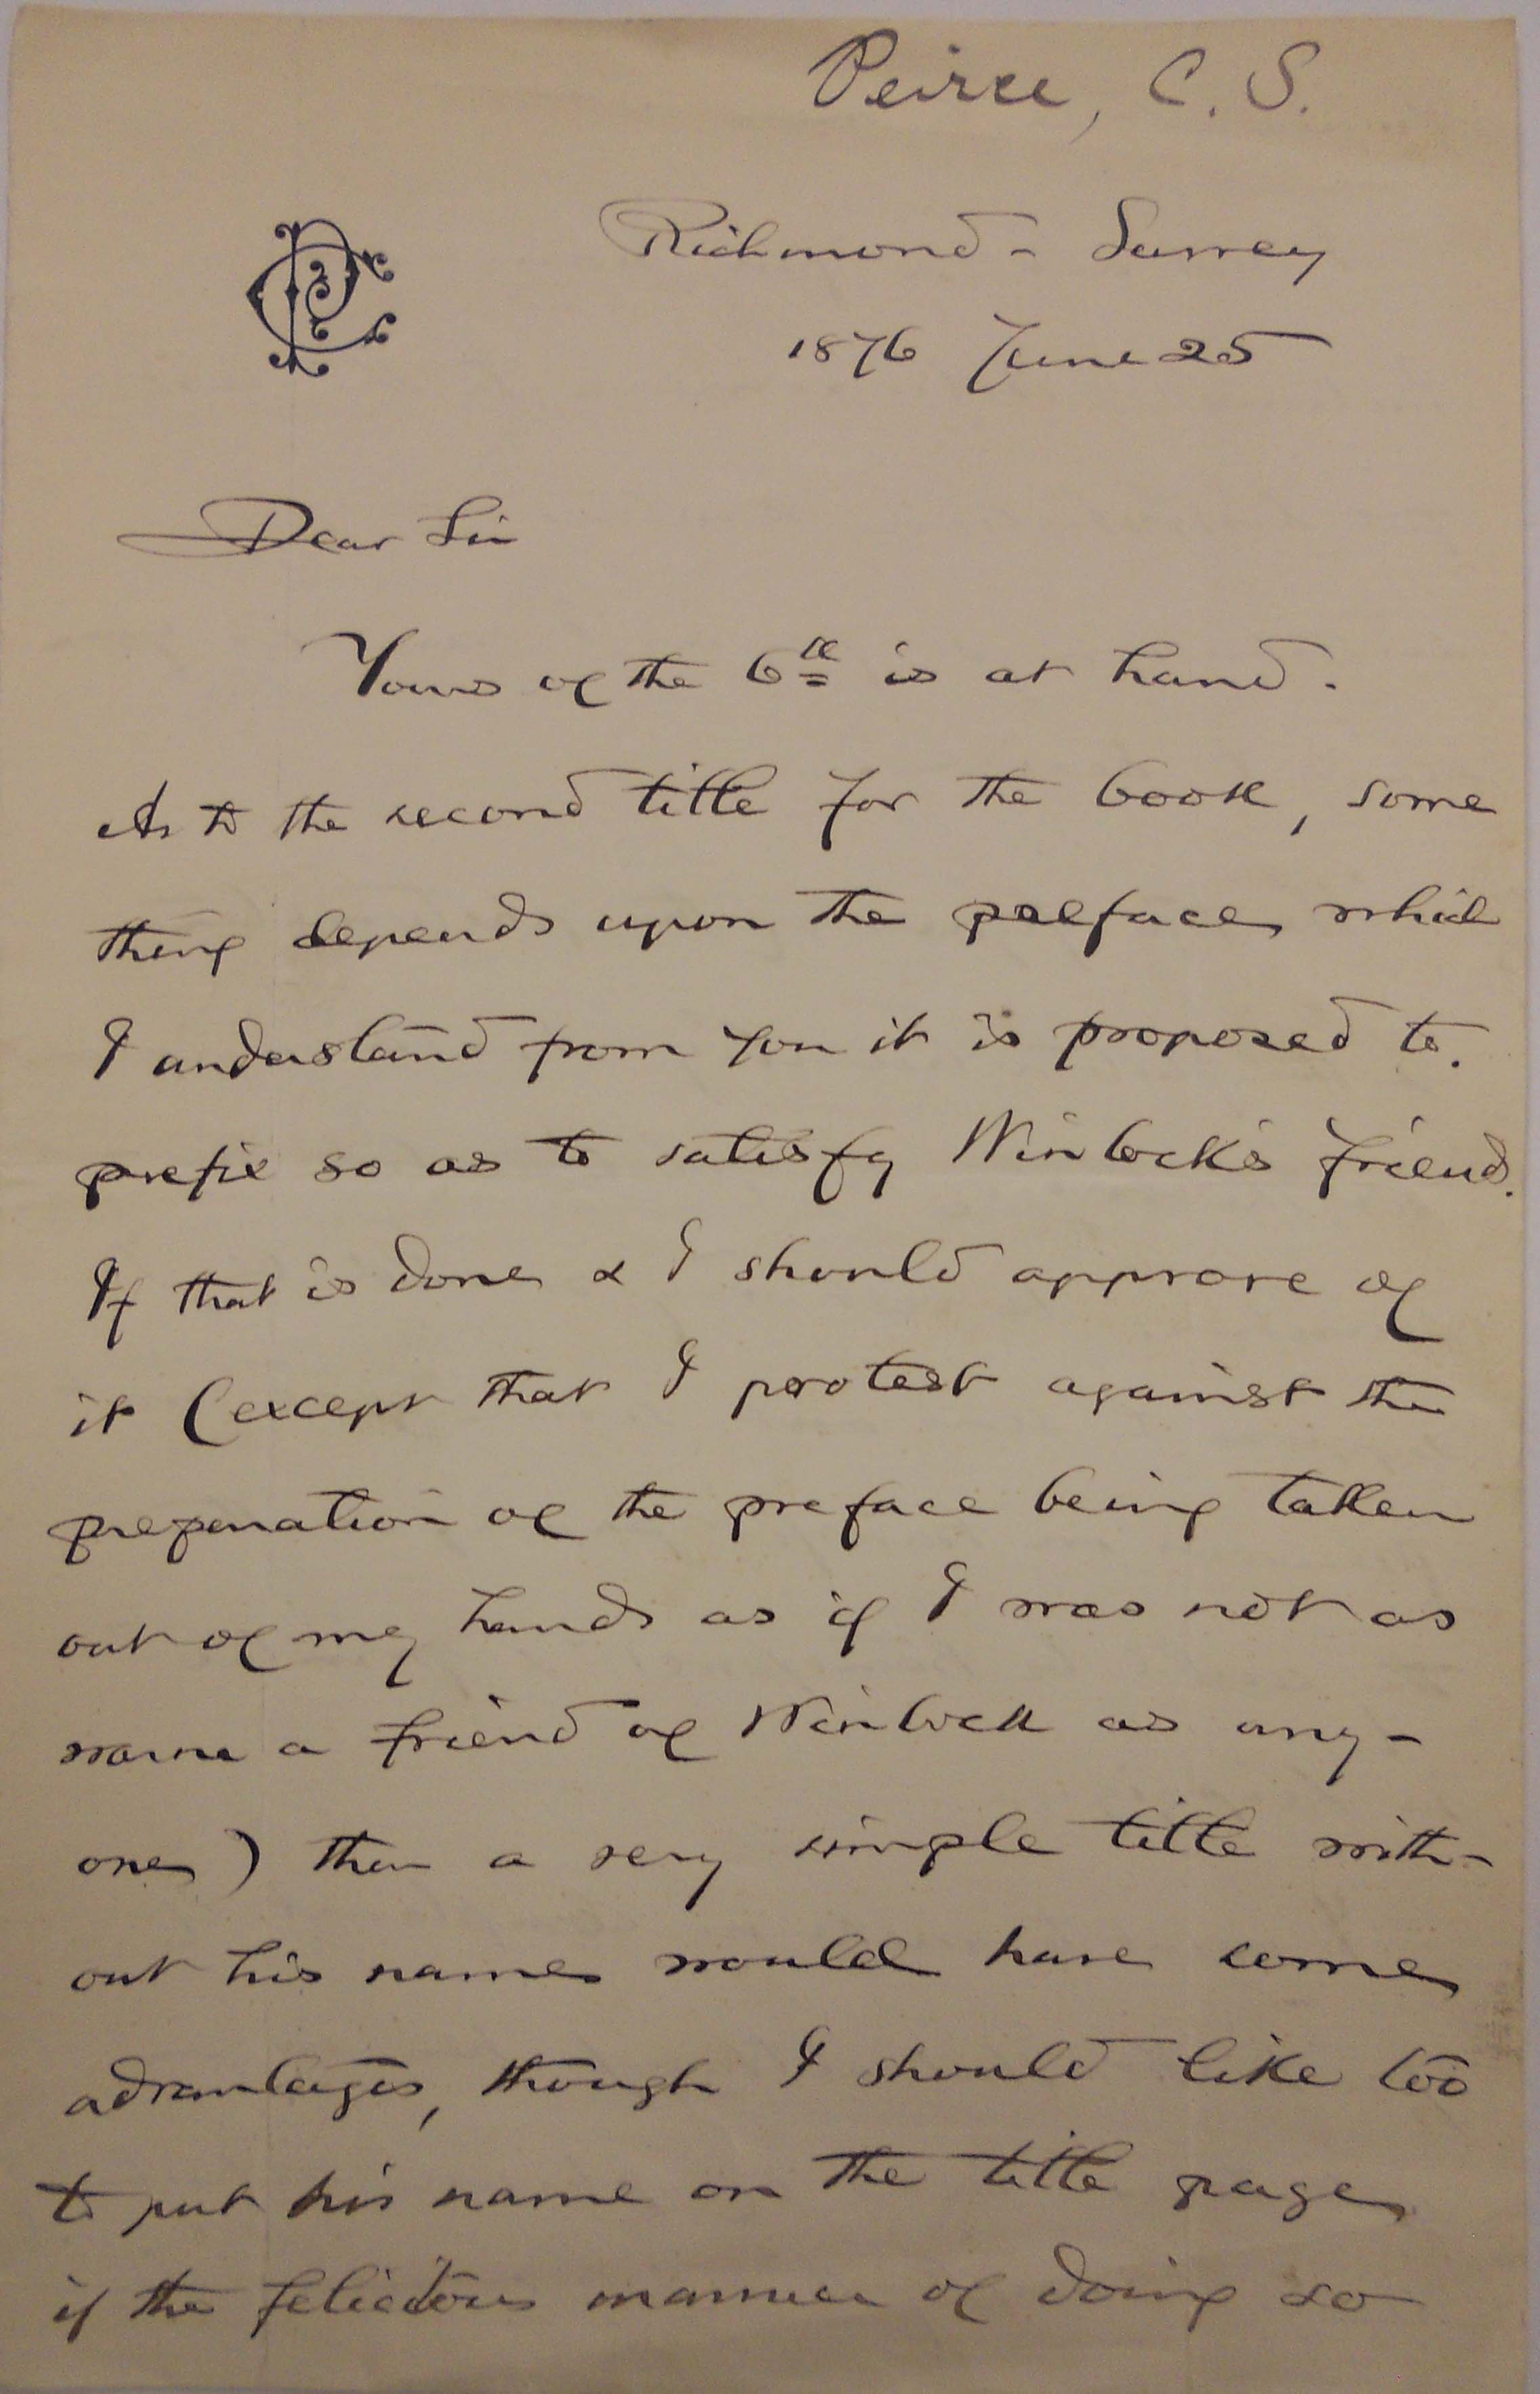 Peirce, C. S.
Richmond - Surrey
1876 June 25
Dear Sir
Yours of the 6th is at hand.
As to the second title for the book, some
thing depends upon the preface which
I understand from you it is proposed to
prefix so as to satisfy Winlock's friend.
If that is done & I should approve of
it (except that I protest against the
preparation of the preface being taken
out of my hands as if I was not as
warm a friend of Winlock as any-
one) then a very simple title with-
out his name would have some
advantages, though I should like too
to put his name on the title page
if the felicitous manner of doing so